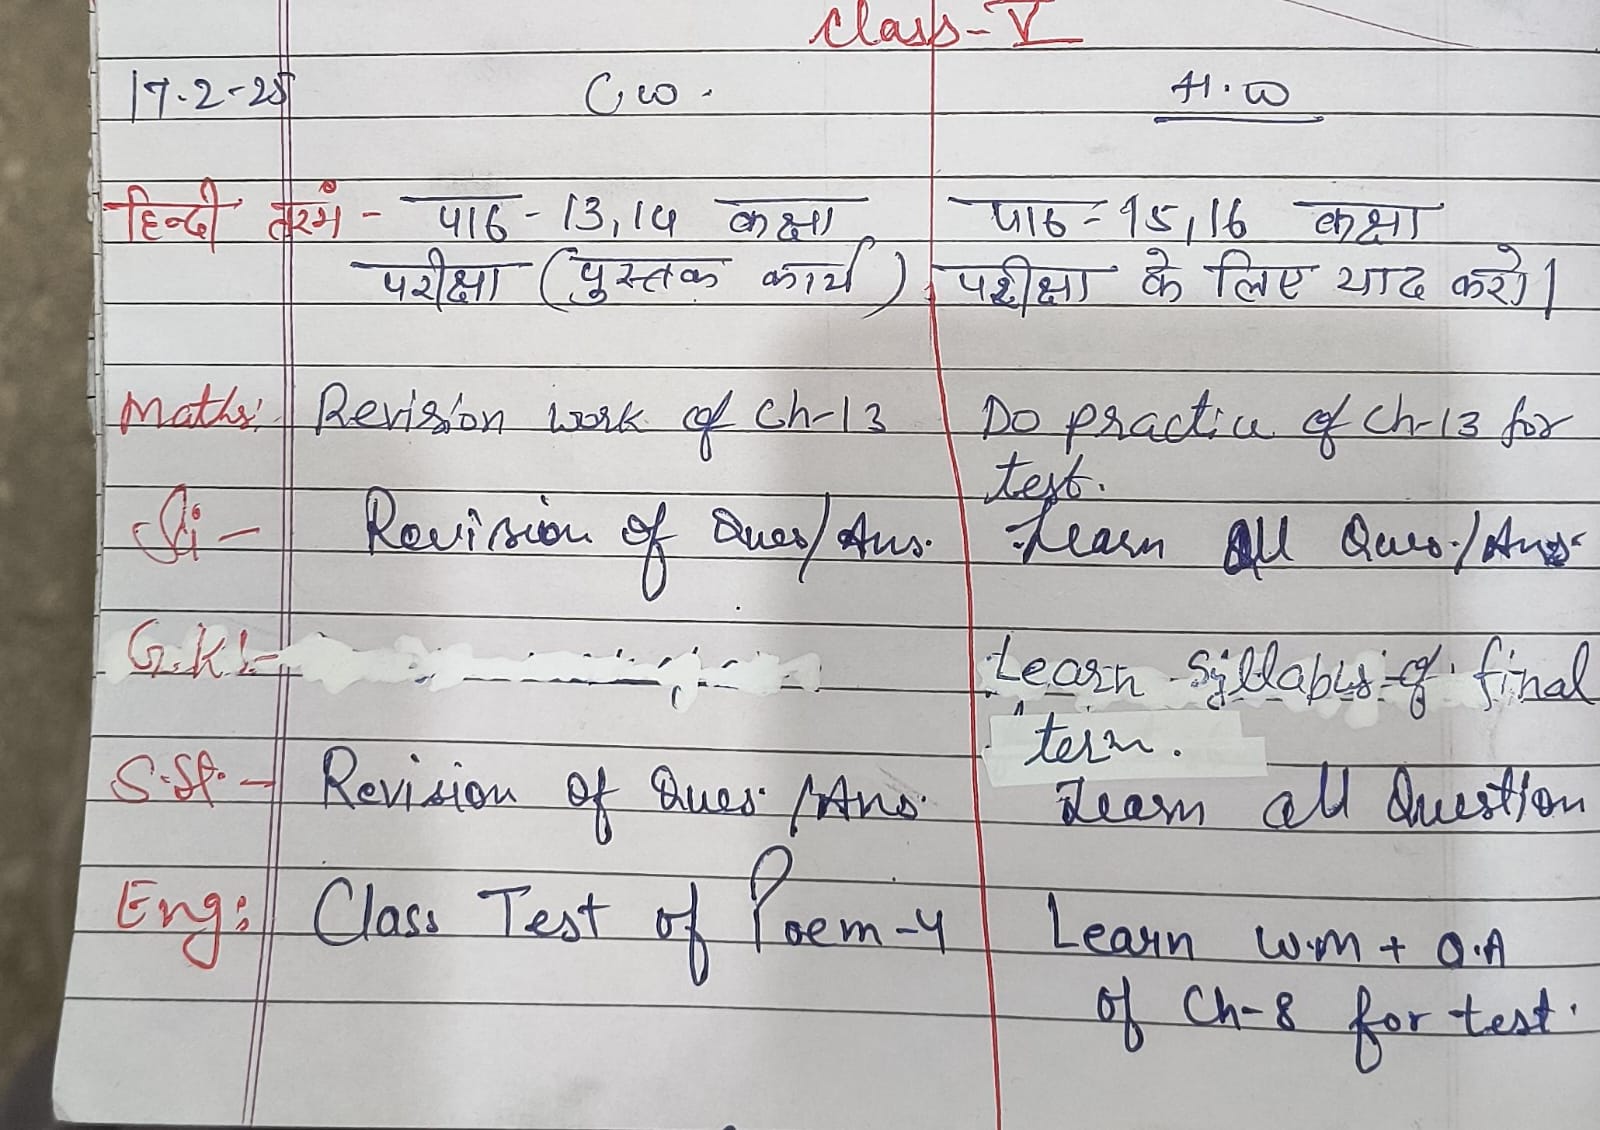 Class-V
17-2-25 C.w. H.W
हिन्दी तरंग - पाठ - 13, 14 कक्षा पाठ - 15, 16 कक्षा
परीक्षा (पुस्तक कार्य) परीक्षा के लिए याद करो।
Maths: Revision work of Ch-13 Do practice of Ch-13 for
test.
Sci - Revision of Ques/Ans. Learn All Ques./Ans.
G.K:- Learn Syllabus of final
term.
S.St. - Revision of Ques. /Ans. Learn all Question
Eng: Class Test of Poem-4 Learn W.M + Q.A
of Ch-8 for test.